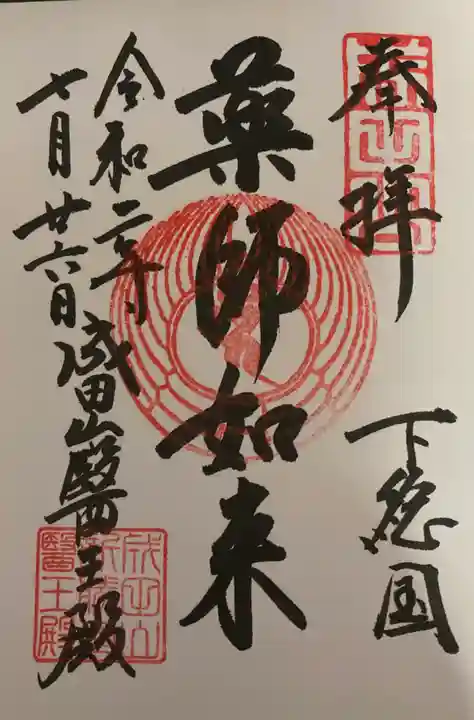 奉拝
下総国
薬師如来
令和二年
七月廿六日
成田山醫王殿
成田山
新勝寺
醫王殿